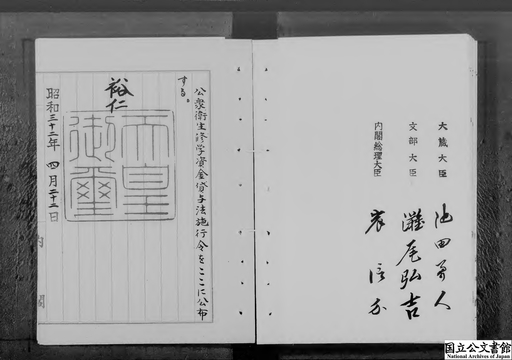 公衆衛生修学資金貸与法施行令をここに公布
する。
裕仁
天皇
御璽
昭和三十二年 四月二十三日
内閣
大蔵大臣 池田勇人
文部大臣 灘尾弘吉
内閣総理大臣 岸信介
国立公文書館
National Archives of Japan